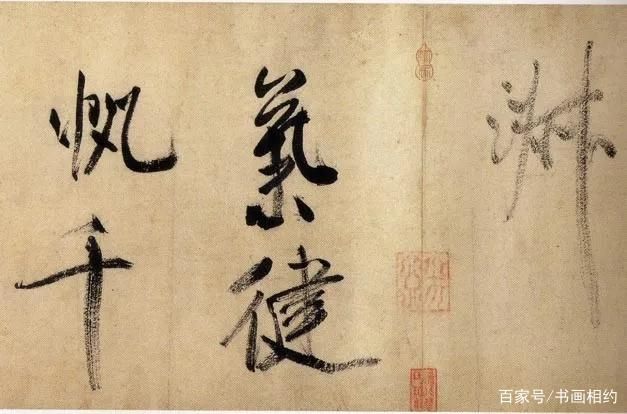 淑
氣健
帆千
百家号/书画相约